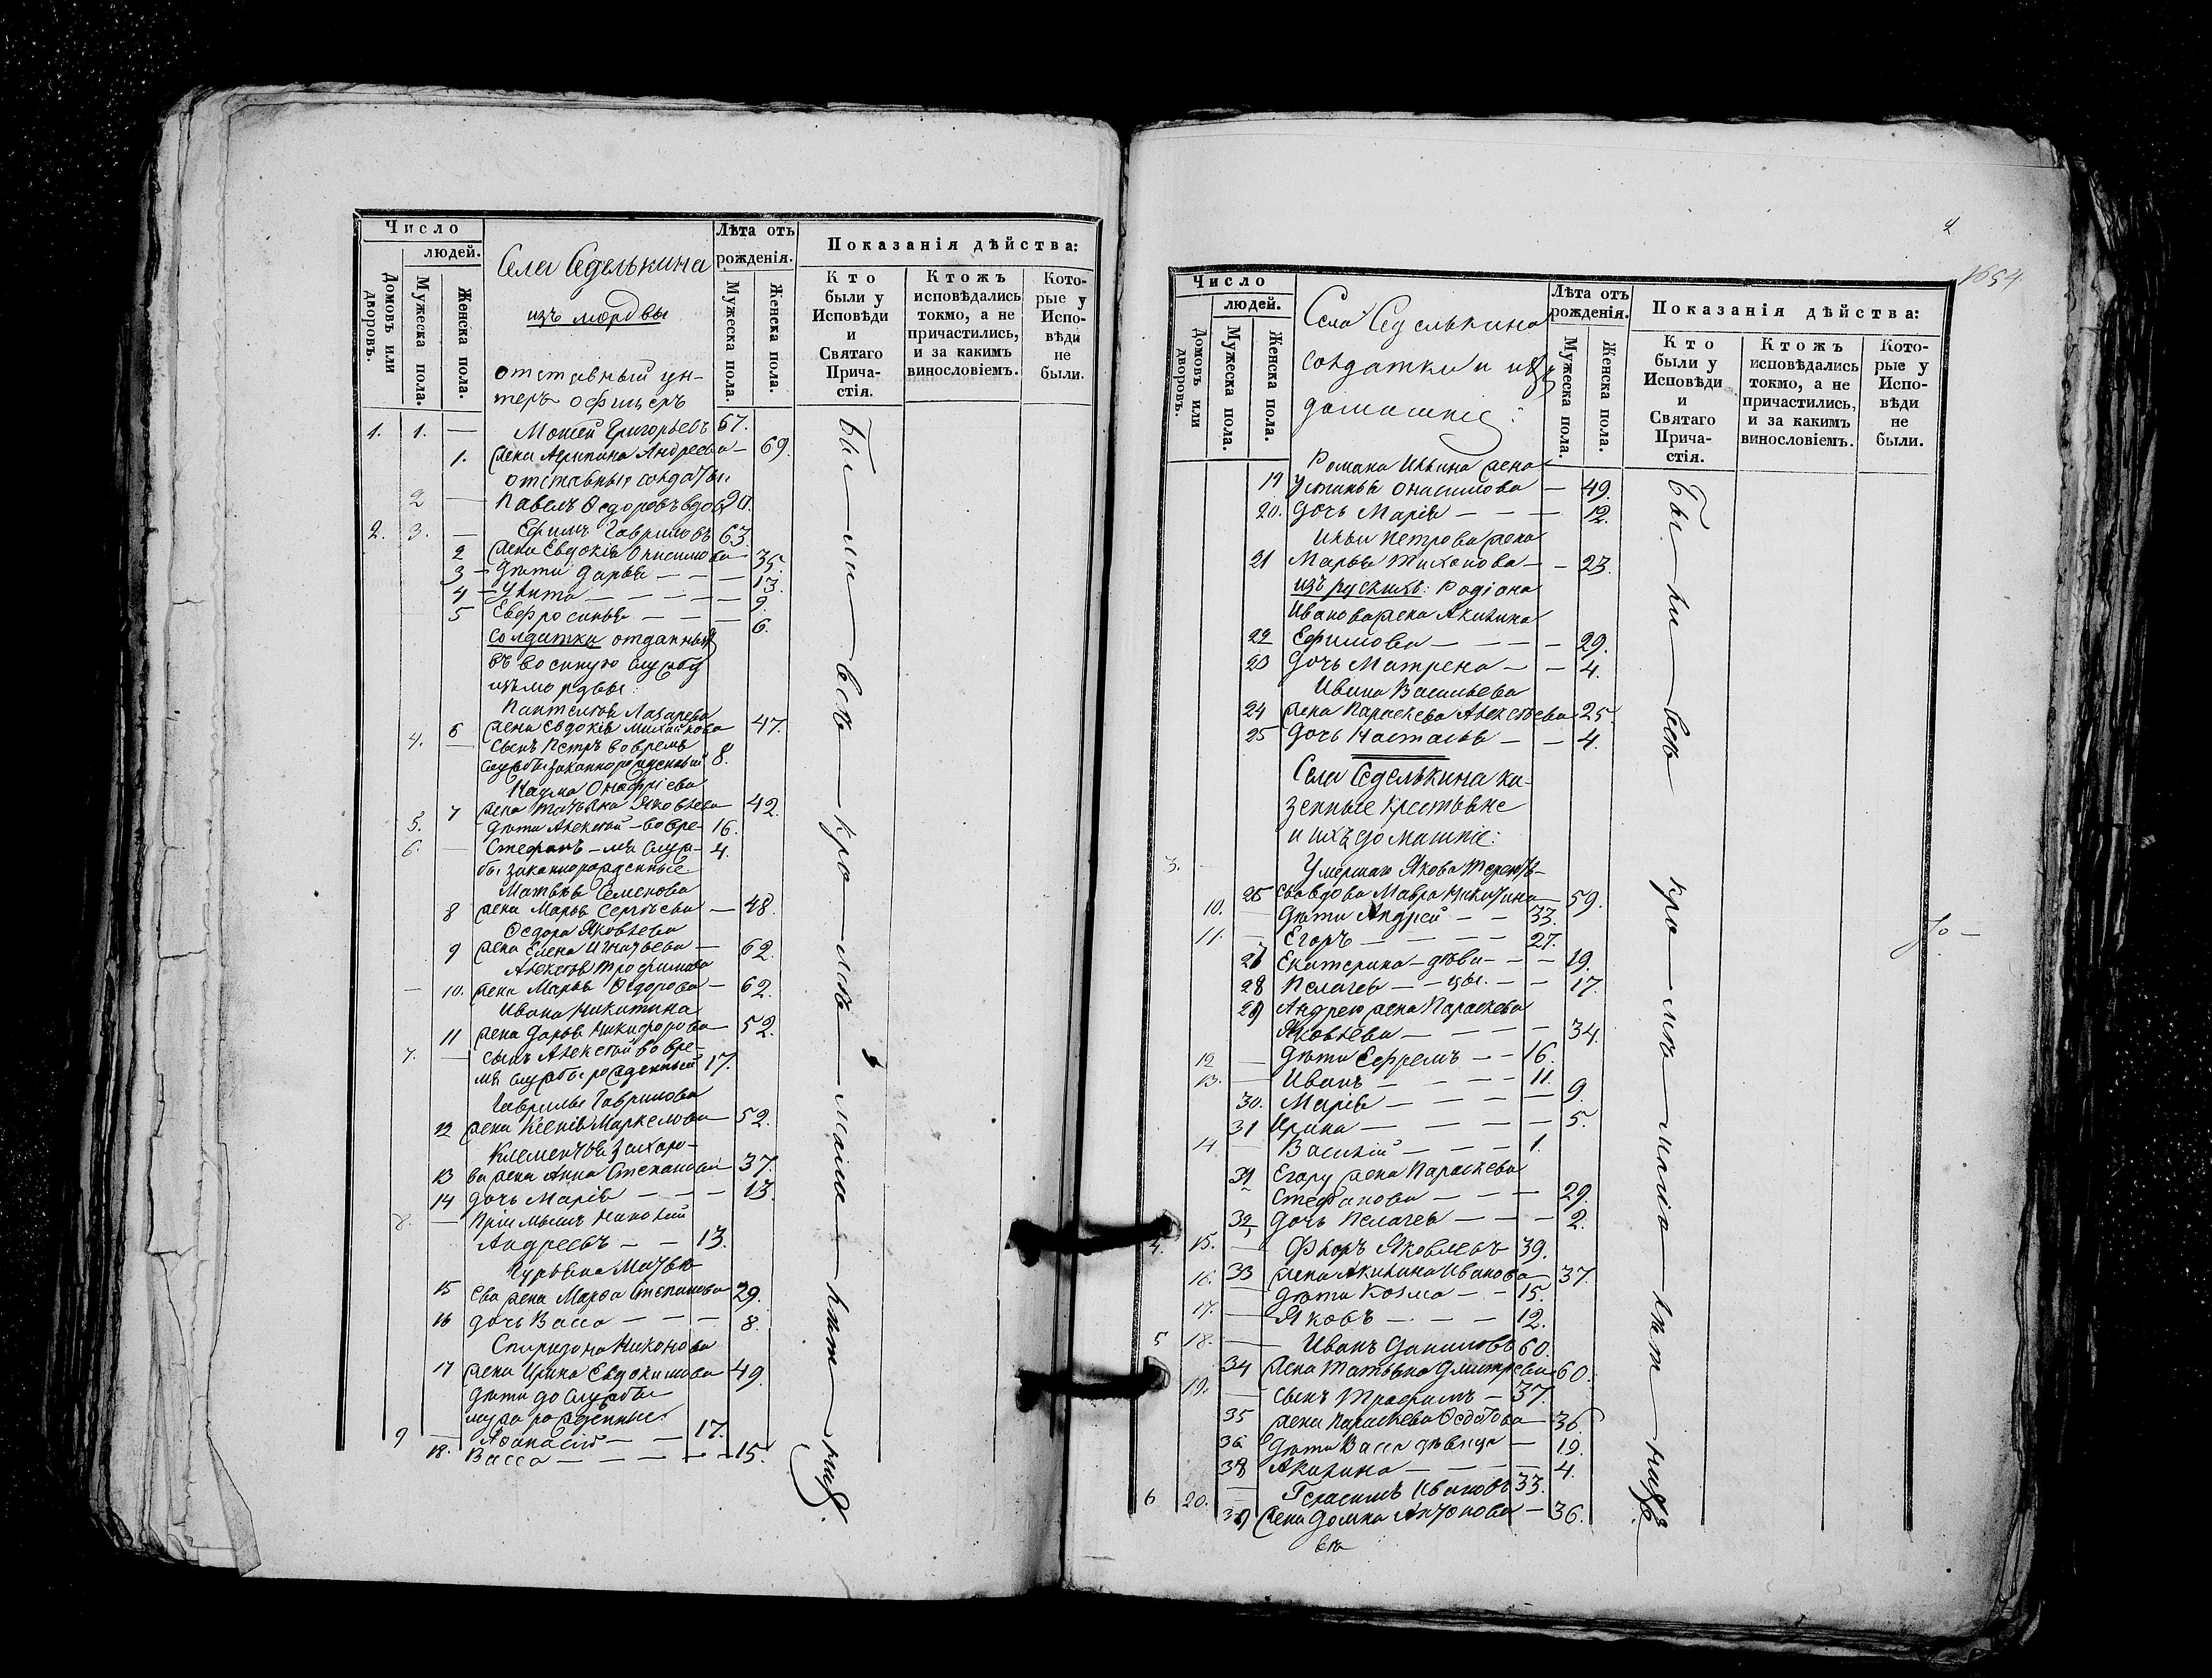 Число
людей.
Домовъ или дворовъ.
Мужеска пола.
Женска пола.
Села Седелькина
изъ мордвы
Лѣта отъ рожденія.
Мужеска пола.
Женска пола.
Показанія дѣйства:
Кто были у Исповѣди и Святаго Прича-стія.
Ктожъ исповѣдались токмо, а не причастились, и за какимъ винословіемъ.
Кото-рые у Испо-вѣди не были.
отставный ун-
теръ офицеръ
1. 1. — Мокей Григорьевъ 67.
1. жена Агрипина Андреева — 69.
отставные солдаты
2 — Павелъ Ѳедоровъ вдовъ
2. 3. — Ефимъ Гавриловъ 63.
2 жена Евдокія Онисимова — 35.
3 — дѣти Дарья — — — 13.
4 — Улита — — — — 9.
5 Евфросинья — — — 6.
солдатки отданныхъ
въ военную службу
изъ мордвы:
Пантелея Лазарева
6 жена Евдокія Михайлова 47.
4. — сынъ Петръ во время
службы законнорожденный 8.
Наума Онофріева
7 жена Татьяна Яковлева — 42.
5. дѣти Алексѣй — во вре- 16.
6. — Стефанъ — мя служ- 4.
бы законнорожденные
Матвѣя Семенова
8 жена Марья Сергѣева — 48.
Ѳедора Яковлева
9 жена Елена Игнатьева — 62.
Алексѣя Трофимова
10. жена Марья Ѳедорова — 62.
Ивана Никитина
11 жена Дарья Никифорова — 52.
7. — сынъ Алексѣй во вре-
мя службы рожденный 17.
Гаврилы Гаврилова
12 жена Ксенія Маркелова — 52.
Клементья Захаро-
13 ва жена Анна Степанова 37.
14 дочь Марія — — — 13.
8. — Пріемышъ Николай
Андреевъ — — 13.
Гурьяна Матвѣ-
15 ева жена Марѳа Степанова 29.
16 дочь Васса — — — 8.
Спиридона Никонова
17 жена Ирина Евдокимова 49.
дѣти до службы
мужа рожденные:
9 — Аѳанасій — — 17.
18. Васса — — — — 15.
Бы — ли — всѣ — кро — мѣ — мало — лѣт — нихъ.
1654
Число
людей.
Домовъ или дворовъ.
Мужеска пола.
Женска пола.
Села Седелькина
солдатки и ихъ
домашніе:
Лѣта отъ рожденія.
Мужеска пола.
Женска пола.
Показанія дѣйства:
Кто были у Исповѣди и Святаго Прича-стія.
Ктожъ исповѣдались токмо, а не причастились, и за какимъ винословіемъ.
Кото-рые у Испо-вѣди не были.
Романа Ильина жена
19 Устинья Онисимова — 49.
20. дочь Марія — — — 12.
Ильи Петрова жена
21 Марья Тихонова — — 23.
изъ рускихъ: Родіона
Иванова жена Акилина
22 Ефимова — — — — 29.
23 дочь Матрена — — 4.
Ивана Васильева
24 жена Параскева Алексѣева 25.
25 дочь Настасья — — 4.
Села Седелькина ка-
зенные крестьяне
и ихъ домашніе:
3. Умершаго Якова Терентѣ-
26 ева вдова Мавра Никитина 59.
10. — дѣти Андрей — — 33.
11. — Егоръ — — — — 27.
27 Екатерина — дѣви — — 19.
28 Пелагея — — цы. — — 17.
29 Андрею жена Параскева
Яковлева — — — — 34.
12 — дѣти Ефремъ — — 16.
13. — Иванъ — — — — 11.
30. Марія — — — — 9.
31 Ирина — — — — — 5.
14 — Василій — — — — 1.
Егору жена Параскева
Стефанова — — — 29.
32 дочь Пелагея — — — 2.
4. 15. — Флоръ Яковлевъ 39.
33 жена Акилина Иванова — 37.
16. дѣти Козма — — 15.
17. — Яковъ — — — — 12.
5 18. — Иванъ Даниловъ 60.
34 жена Татьяна Дмитрева 60.
19. — сынъ Трофимъ — 37.
35 жена Параскева Ѳедотова — 36.
36 дѣти Васса дѣвица — 19.
38 Акилина — — — — 4.
6 20. — Герасимъ Ивановъ 33.
39 жена Домна Антонова — 36.
Бы — ли — всѣ кро — мѣ — мало — лѣт — нихъ.